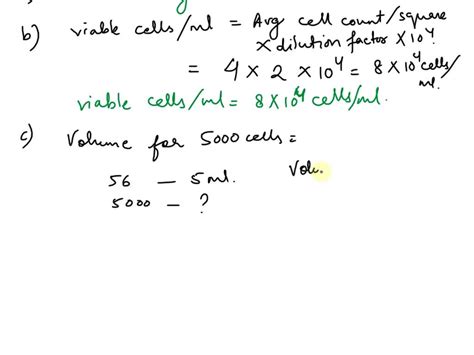 b) viable cells/ml = Avg cell count/square
× dilution factor × 10⁴
= 4 × 2 × 10⁴ = 8 × 10⁴ cells/
ml.
viable cells/ml = 8×10⁴ cells/ml.
c) Volume for 5000 cells =
56 — 5 ml. Volu
5000 — ?